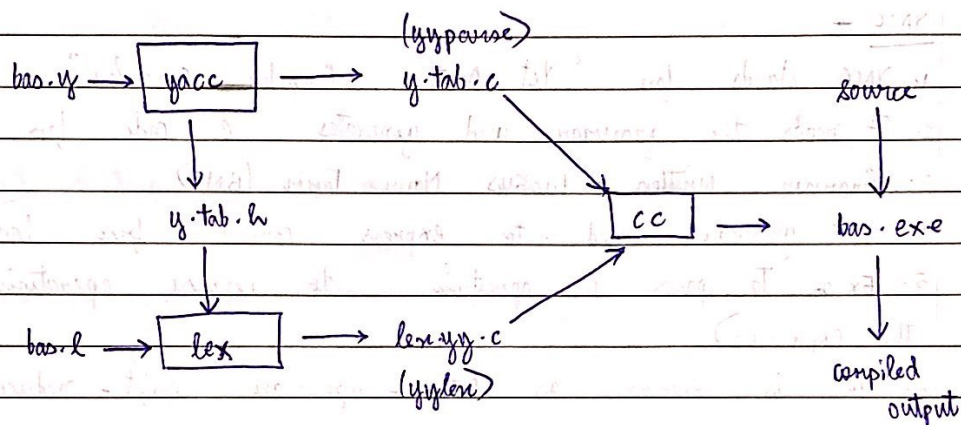 (yyparse)
bas.y → yacc → y.tab.c
source
y.tab.h
cc → bas.exe
bas.l → lex → lex.yy.c
(yylex)
compiled
output